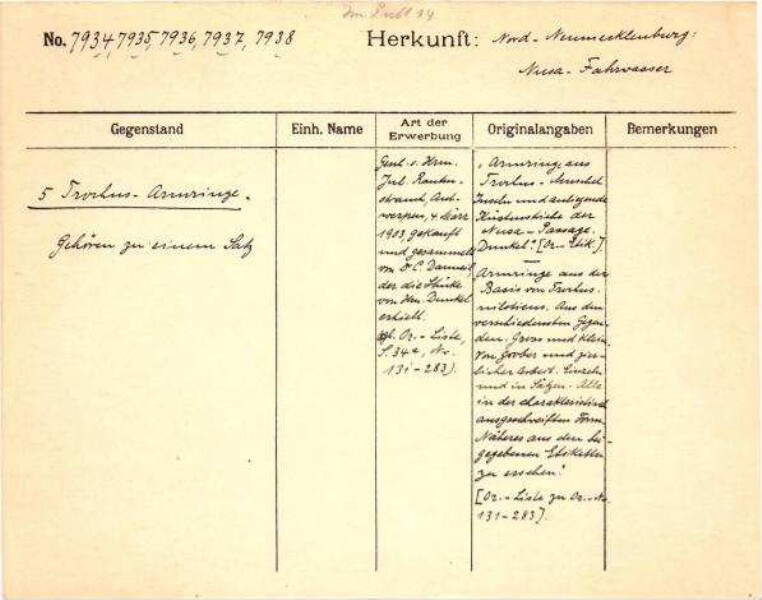 No. 7934, 7935, 7936, 7937, 7938
Herkunft: Nord-Neumecklenburg:
Nusa-Fahrwasser
Gegenstand
Einh. Name
Art der
Erwerbung
Originalangaben
Bemerkungen
5 Trochus-Armringe.
Gehören zu einem Satz
Gesch. v. Hrn.
Jul. Rauten-
strauch, Ant-
werpen, 4 März
1903, gekauft
und gesammelt
von Dr C. Danneil,
der die Stücke
von Hrn. Dunkel
erhielt.
Or.-Liste,
S. 34a, No.
131-283).
"Armringe aus
Trochus-Muschel
Inseln und anliegende
Küstenstriche der
Nusa-Passage.
Dunkel". [Or-Etik.].
"Armringe aus der
Basis von Trochus
niloticus. Aus den
verschiedensten Gegen-
den. Gross und klein.
Von grober und zier-
licher Arbeit. Einzeln
und in Sätzen. Alle
in der charakteristisch
ausgeschweiften Form.
Näheres aus den bei-
gegebenen Etiketten
zu ersehen."
[Or.-Liste zu Or.-No.
131-283].